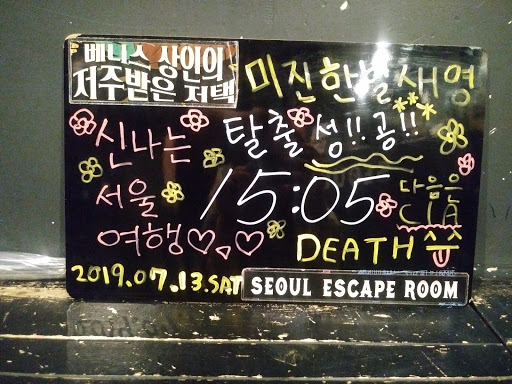 베니스 상인의
저주받은 저택
미진한일새영
신나는
서울
여행♡♡♡
탈출 성!! 공!!
15:05
다음은
CIA
DEATH
2019.07.13.SAT
SEOUL ESCAPE ROOM